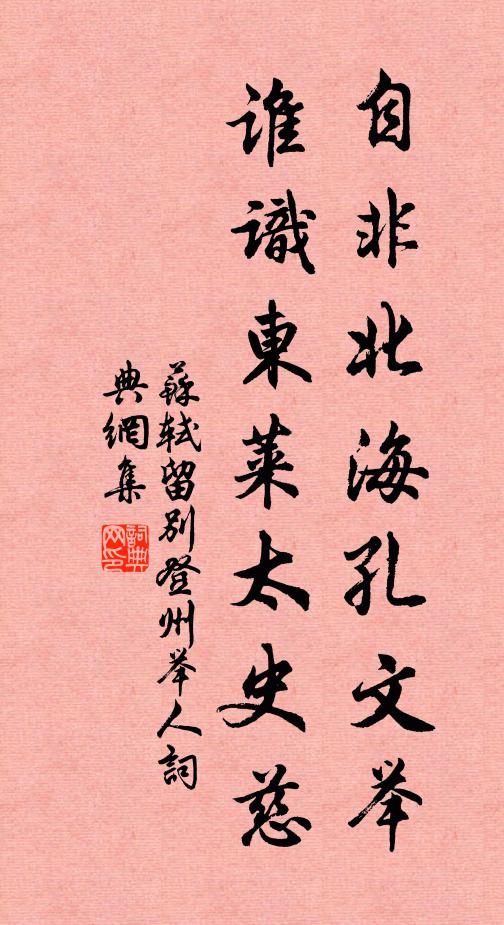 自非北海孔文举
谁識東莱太史慈
蘇轼留别登州举人詞
典網集
詞典
网印